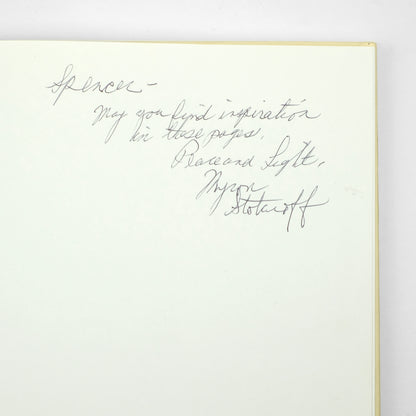 Spencer –
May you find inspiration
in these pages.
Peace and Light,
Myron
Stolaroff